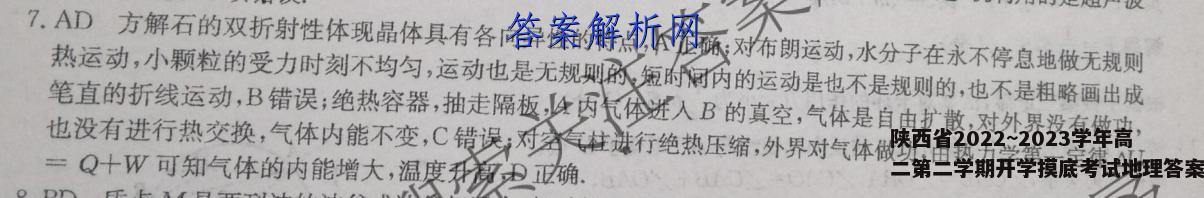 7. AD 方解石的双折射性体现晶体具有各向异性的特点,A正确;对布朗运动,水分子在永不停息地做无规则
热运动,小颗粒的受力时刻不均匀,运动也是无规则的,短时间内的运动是也不是规则的,也不是粗略画出成
笔直的折线运动,B错误;绝热容器,抽走隔板,A内气体进入B的真空,气体是自由扩散,对外界没有做功,
也没有进行热交换,气体内能不变,C错误;对空气柱进行绝热压缩,外界对气体做功
= Q+W 可知气体的内能增大,温度升高,D正确.
答案解析网
陕西省2022~2023学年高
二第二学期开学摸底考试地理答案